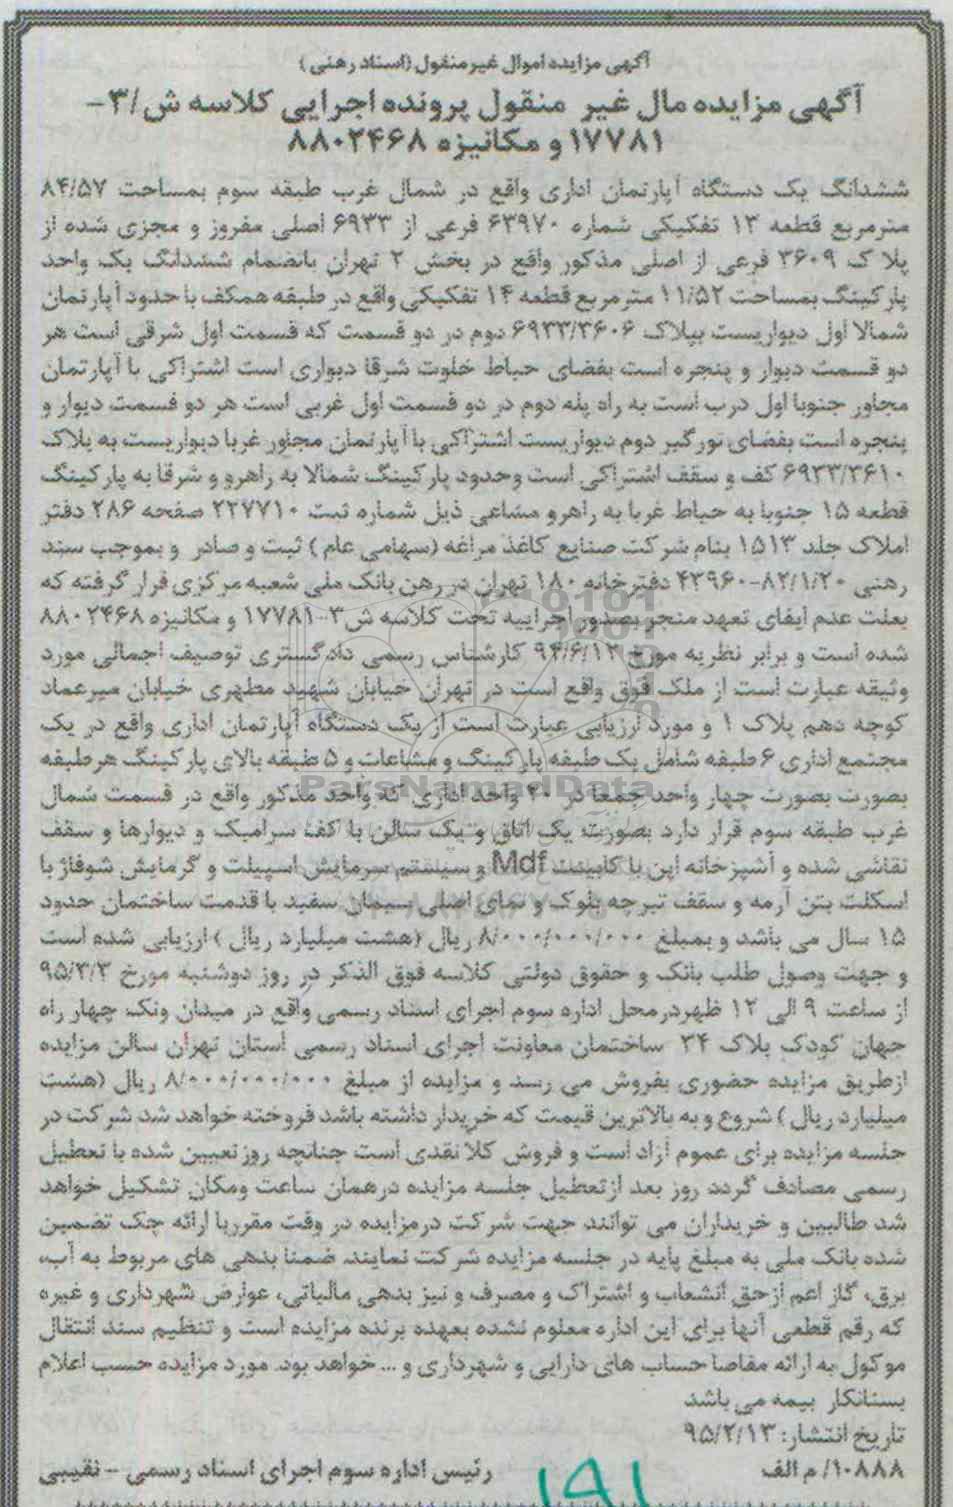 آگهی مزایده اموال غیرمنقول (اسناد رهنی)
آگهی مزایده مال غیر منقول پرونده اجرایی کلاسه ش/۳-
۱۷۷۸۱ و مکانیزه ۸۸۰۲۴۶۸
ششدانگ یک دستگاه آپارتمان اداری واقع در شمال غرب طبقه سوم بمساحت ۸۴/۵۷
مترمربع قطعه ۱۳ تفکیکی شماره ۶۳۹۷۰ فرعی از ۶۹۳۳ اصلی مفروز و مجزی شده از
پلاک ۳۶۰۹ فرعی از اصلی مذکور واقع در بخش ۲ تهران بانضمام ششدانگ یک واحد
پارکینگ بمساحت ۱۱/۵۲ مترمربع قطعه ۱۴ تفکیکی واقع در طبقه همکف با حدود آپارتمان
شمالا اول دیواریست بپلاک ۶۹۳۳/۳۶۰۶ دوم در دو قسمت که قسمت اول شرقی است هر
دو قسمت دیوار و پنجره است بفضای حیاط خلوت شرقا دیواری است اشتراکی با آپارتمان
مجاور جنوبا اول درب است به راه پله دوم در دو قسمت اول غربی است هر دو قسمت دیوار و
پنجره است بفضای نورگیر دوم دیواریست اشتراکی با آپارتمان مجاور غربا دیواریست به پلاک
۶۹۳۳/۳۶۱۰ کف و سقف اشتراکی است وحدود پارکینگ شمالا به راهرو و شرقا به پارکینگ
قطعه ۱۵ جنوبا به حیاط غربا به راهرو مشاعی ذیل شماره ثبت ۲۲۷۷۱۰ صفحه ۲۸۶ دفتر
املاک جلد ۱۵۱۳ بنام شرکت صنایع کاغذ مراغه (سهامی عام) ثبت و صادر و بموجب سند
رهنی ۸۲/۱/۲۰-۴۳۹۶۰ دفترخانه ۱۸۰ تهران در رهن بانک ملی شعبه مرکزی قرار گرفته که
بعلت عدم ایفای تعهد منجر بصدور اجراییه تحت کلاسه ش۳-۱۷۷۸۱ و مکانیزه ۸۸۰۲۴۶۸
شده است و برابر نظریه مورخ ۹۴/۶/۱۲ کارشناس رسمی دادگستری توصیف اجمالی مورد
وثیقه عبارت است از ملک فوق واقع است در تهران خیابان شهید مطهری خیابان میرعماد
کوچه دهم پلاک ۱ و مورد ارزیابی عبارت است از یک دستگاه آپارتمان اداری واقع در یک
مجتمع اداری ۶ طبقه شامل یک طبقه پارکینگ و مشاعات و ۵ طبقه بالای پارکینگ هرطبقه
بصورت بصورت چهار واحد جمعا در ۲۰ واحد اداری که واحد مذکور واقع در قسمت شمال
غرب طبقه سوم قرار دارد بصورت یک اتاق و یک سالن با کف سرامیک و دیوارها و سقف
نقاشی شده و آشپزخانه اپن با کابینت Mdf و سیستم سرمایش اسپیلت و گرمایش شوفاژ با
اسکلت بتن آرمه و سقف تیرچه بلوک و نمای اصلی سیمان سفید با قدمت ساختمان حدود
۱۵ سال می باشد و بمبلغ ۸/۰۰۰/۰۰۰/۰۰۰ ریال (هشت میلیارد ریال) ارزیابی شده است
و جهت وصول طلب بانک و حقوق دولتی کلاسه فوق الذکر در روز دوشنبه مورخ ۹۵/۳/۳
از ساعت ۹ الی ۱۲ ظهردرمحل اداره سوم اجرای اسناد رسمی واقع در میدان ونک چهار راه
جهان کودک پلاک ۳۴ ساختمان معاونت اجرای اسناد رسمی استان تهران سالن مزایده
ازطریق مزایده حضوری بفروش می رسد و مزایده از مبلغ ۸/۰۰۰/۰۰۰/۰۰۰ ریال (هشت
میلیارد ریال) شروع و به بالاترین قیمت که خریدار داشته باشد فروخته خواهد شد شرکت در
جلسه مزایده برای عموم آزاد است و فروش کلا نقدی است چنانچه روز تعیین شده با تعطیل
رسمی مصادف گردد روز بعد ازتعطیل جلسه مزایده درهمان ساعت ومکان تشکیل خواهد
شد طالبین و خریداران می توانند جهت شرکت درمزایده در وقت مقرربا ارائه چک تضمین
شده بانک ملی به مبلغ پایه در جلسه مزایده شرکت نمایند. ضمنا بدهی های مربوط به آب،
برق، گاز اعم ازحق انشعاب و اشتراک و مصرف و نیز بدهی مالیاتی، عوارض شهرداری و غیره
که رقم قطعی آنها برای این اداره معلوم نشده بعهده برنده مزایده است و تنظیم سند انتقال
موکول به ارائه مفاصا حساب های دارایی و شهرداری و ... خواهد بود. مورد مزایده حسب اعلام
بستانکار بیمه می باشد
تاریخ انتشار: ۹۵/۲/۱۳
۱۰۸۸۸/م الف رئیس اداره سوم اجرای اسناد رسمی - نقیبی
۱۹۱
ParsNamadData